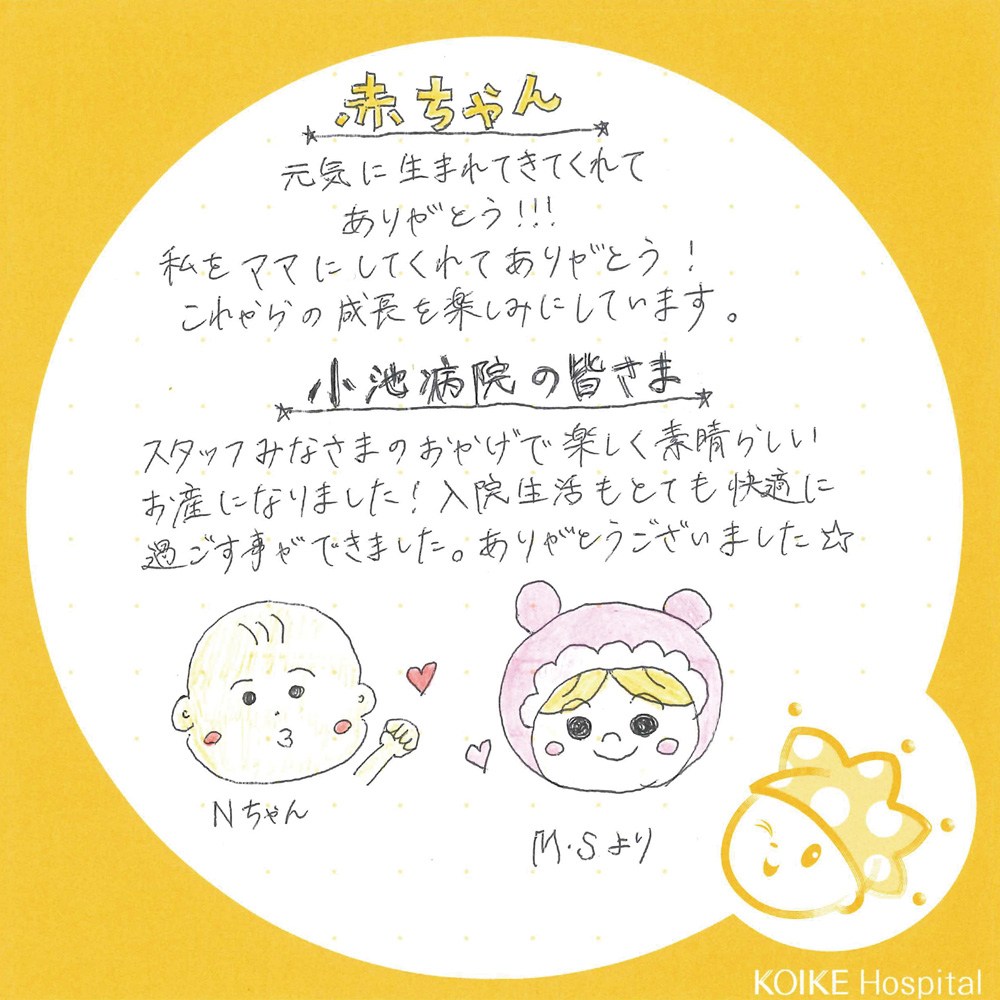 赤ちゃん
元気に生まれてきてくれて
ありがとう!!!
私をママにしてくれてありがとう!
これからの成長を楽しみにしています。
小池病院の皆さま
スタッフみなさまのおかげで楽しく素晴らしい
お産になりました!入院生活もとても快適に
過ごす事ができました。ありがとうございました☆
Nちゃん
M.Sより
KOIKE Hospital